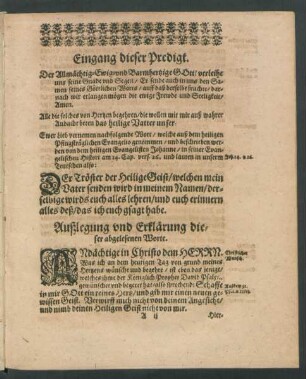 Eingang dieser Predigt.
Der Allmächtig Ewig vnd Barmhertzige GOtt / verleihe
vns seine Gnade vnd Segen / Er sende auch in vns den Sa-
men seines Göttlichen Worts / auff daß derselbe fruchte / dar-
nach wir erlangen mögen die ewige Freude vnd Seeligkeit /
Amen.
Alle die solches von Hertzen begehren / die wollen mit mir auß wahrer
Andacht beten das heilige Vatter vnser.
Ewer lieb vernemen nachfolgende Wort / welche auß dem heiligen
Pfingstäglichen Evangelio genommen / vnd beschrieben wer-
den von dem heiligen Evangelisten Johanne / in seiner Evan-
gelischen Histori am 14. Cap. vers. 26. vnd lauten in vnserm
Teutschen also:
Joh. 14. v. 26.
DEr Tröster der Heilige Geist / welchen mein
Vater senden wird in meinem Namen / der-
selbige wirds euch alles lehren / vnd euch erinnern
alles deß / das ich euch gesagt habe.
Außlegung vnd Erklärung die-
ser abgelesenen Worte.
ANdächtige in Christo dem HERRN.
Was ich an dem heutigen Tag von grund meines
Hertzens wünsche vnd begehre / ist eben das jenige /
welches ihme der Königlich Prophet David
gewünschet vnd begeret hat / also sprechend: Schaffe
in mir GOtt ein reines Hertz / vnd gib mir einen neuen ge-
wissen Geist. Verwirff mich nicht von deinem Angesicht /
vnd nimb deinen Heiligen Geist nicht von mir.
A ij
Hier-